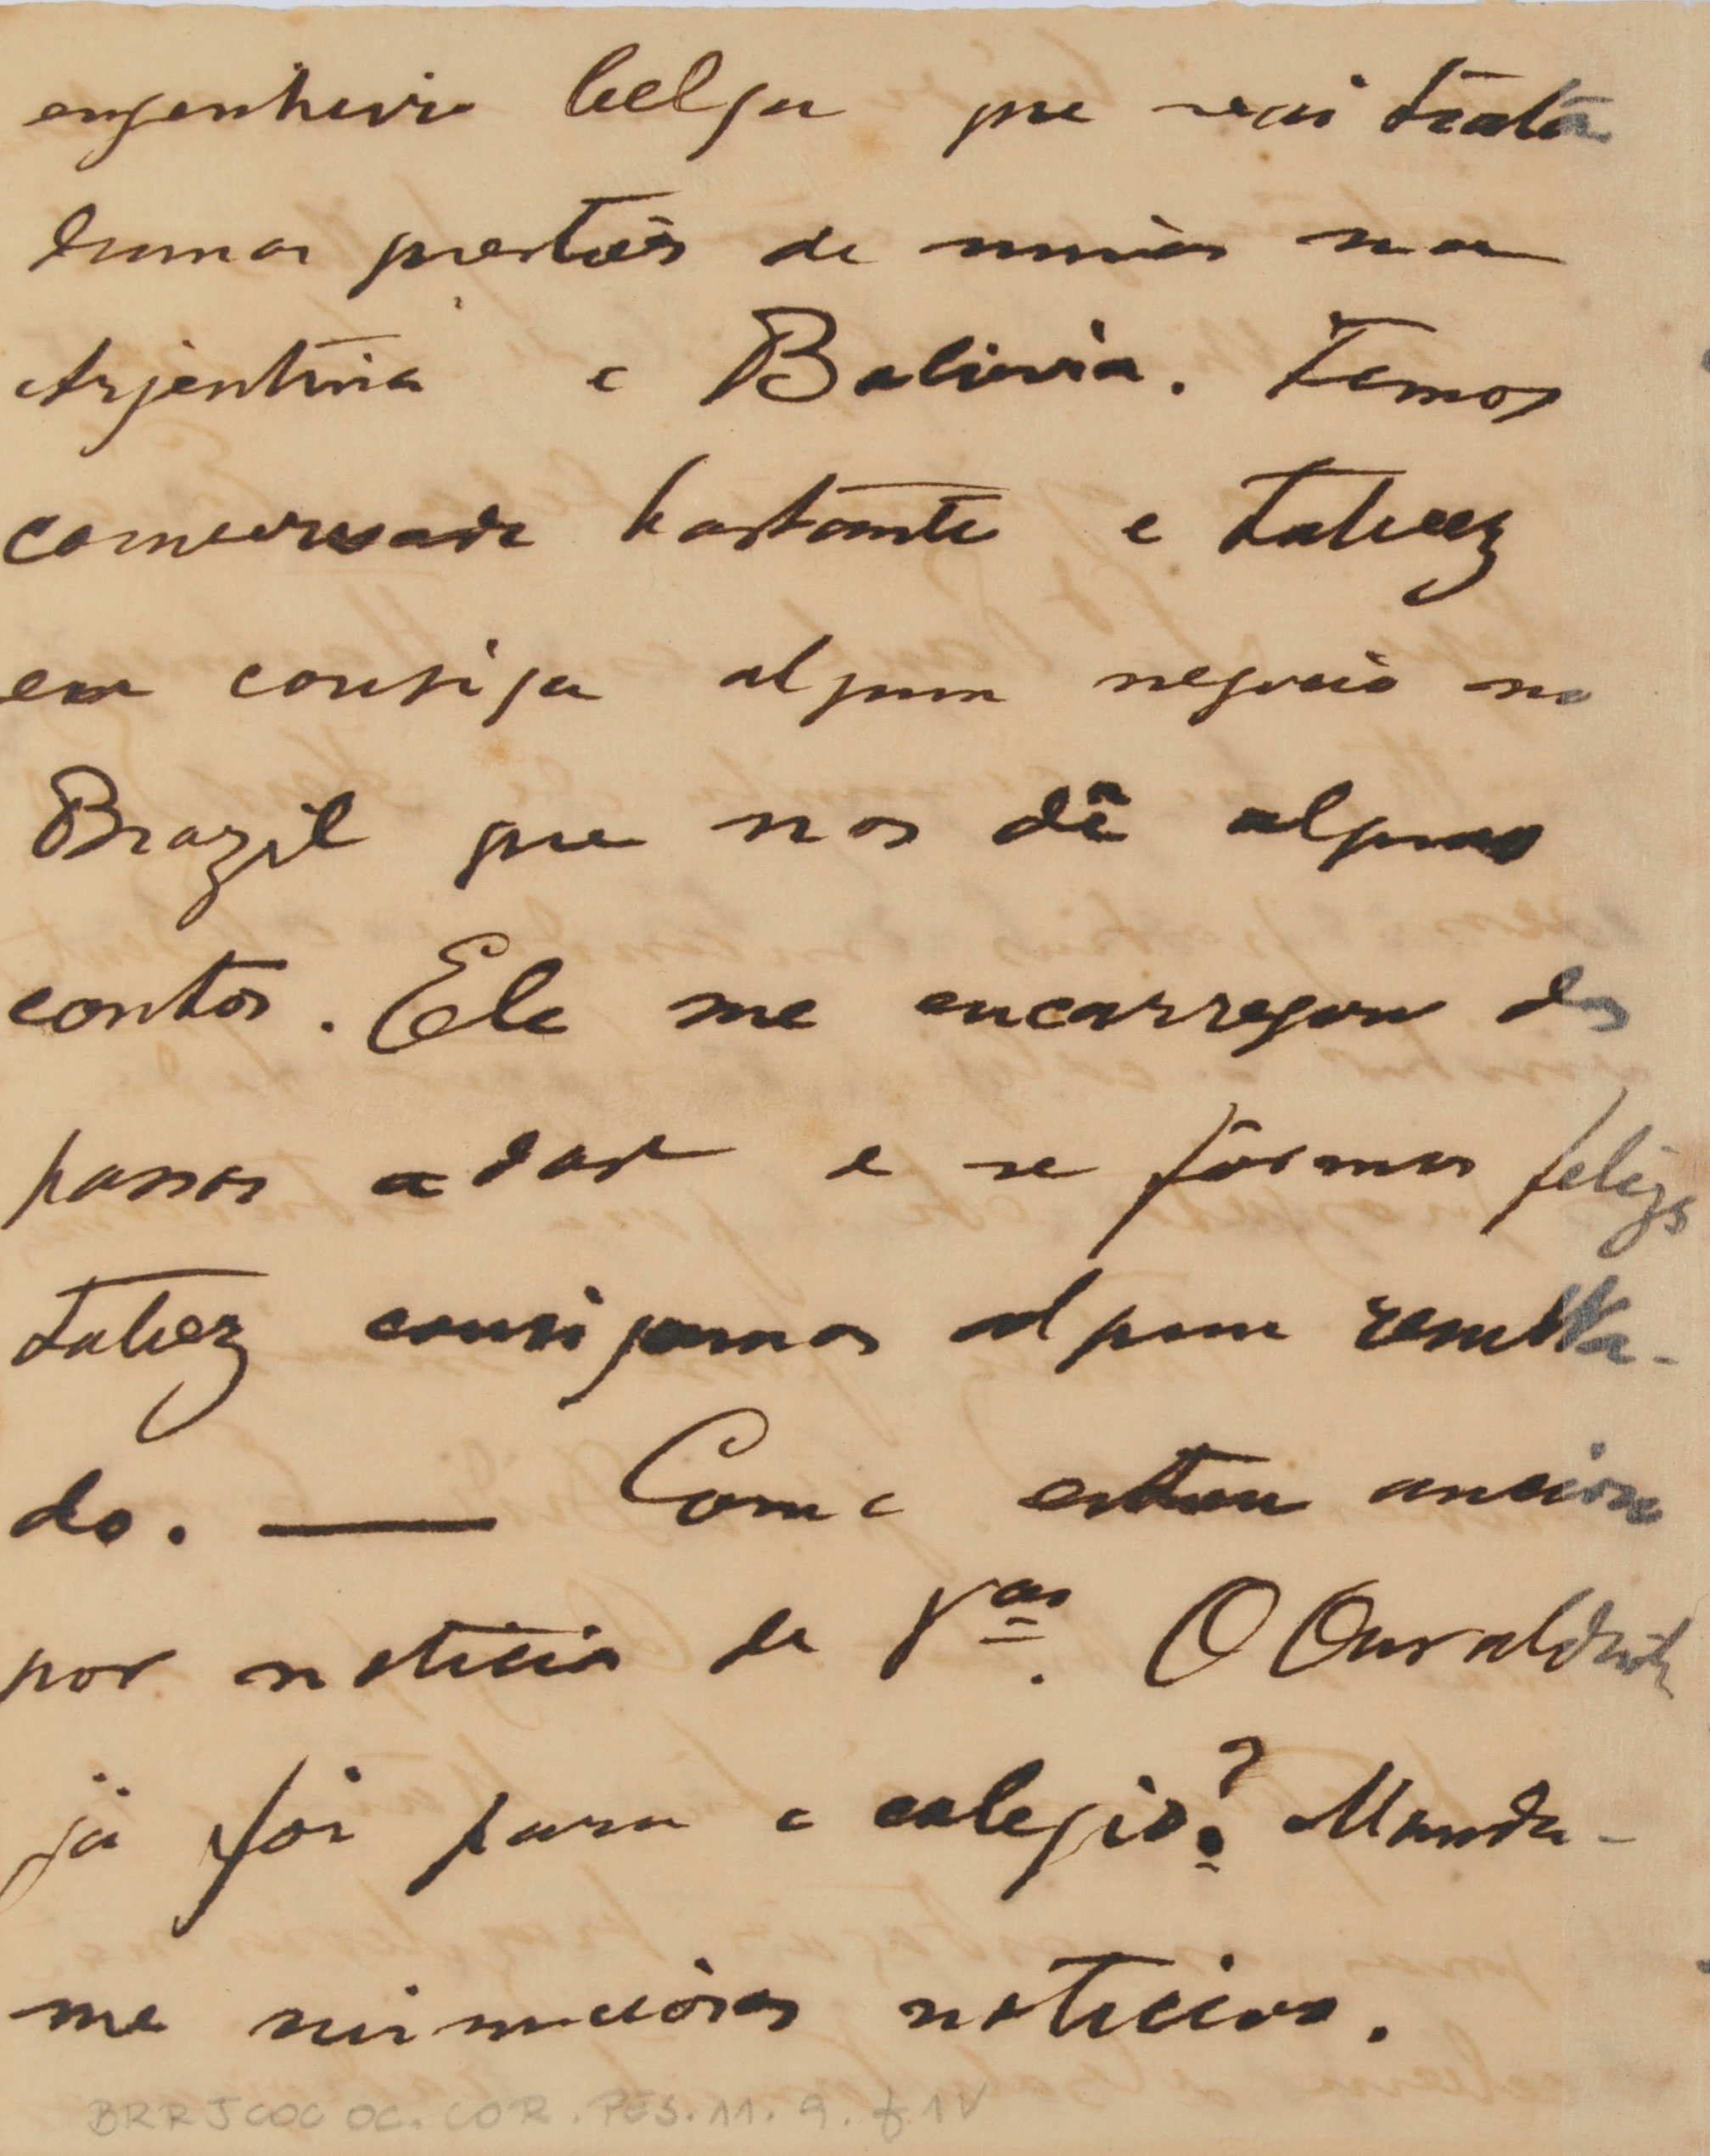 engenheiro belga que vai tratar
dumas questões de minas na
Arjentina e Bolivia. Temos
conversado bastante e talvez
eu consiga algum negocio no
Brazil que nos dê alguns
contos. Ele me encarregou dos
passos a dar e se fôrmos felizes
talvez consigamos algum resulta-
do. — Como estou ancioso
por noticias de Vas. O Oswaldinho
já foi para o colegio? Manda-
me minuciosas noticias.
BRRJCOC OC.COR.PES.11.9.f.1V